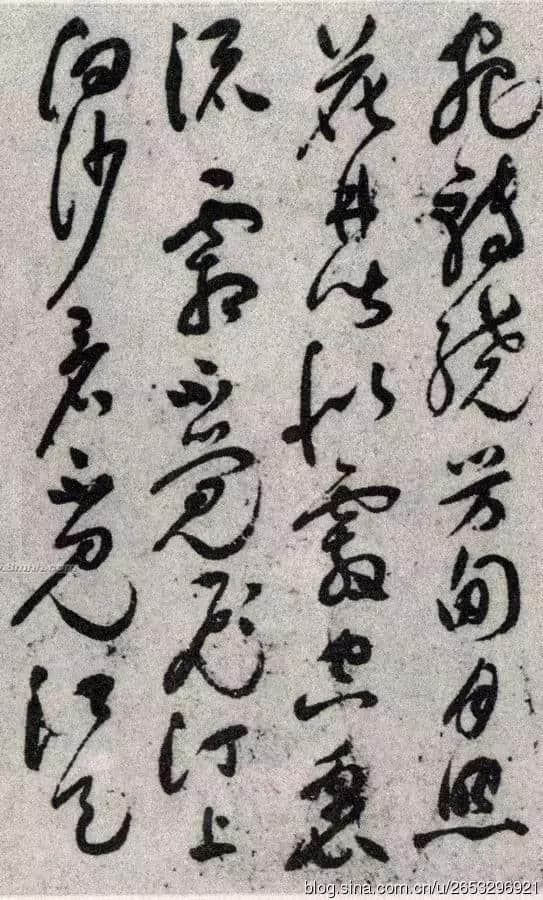 宛轉繞芳甸月照
花林皆似霰空裏
流霜不覺飛汀上
白沙看不見江天
blog.sina.com.cn/u/2653296921